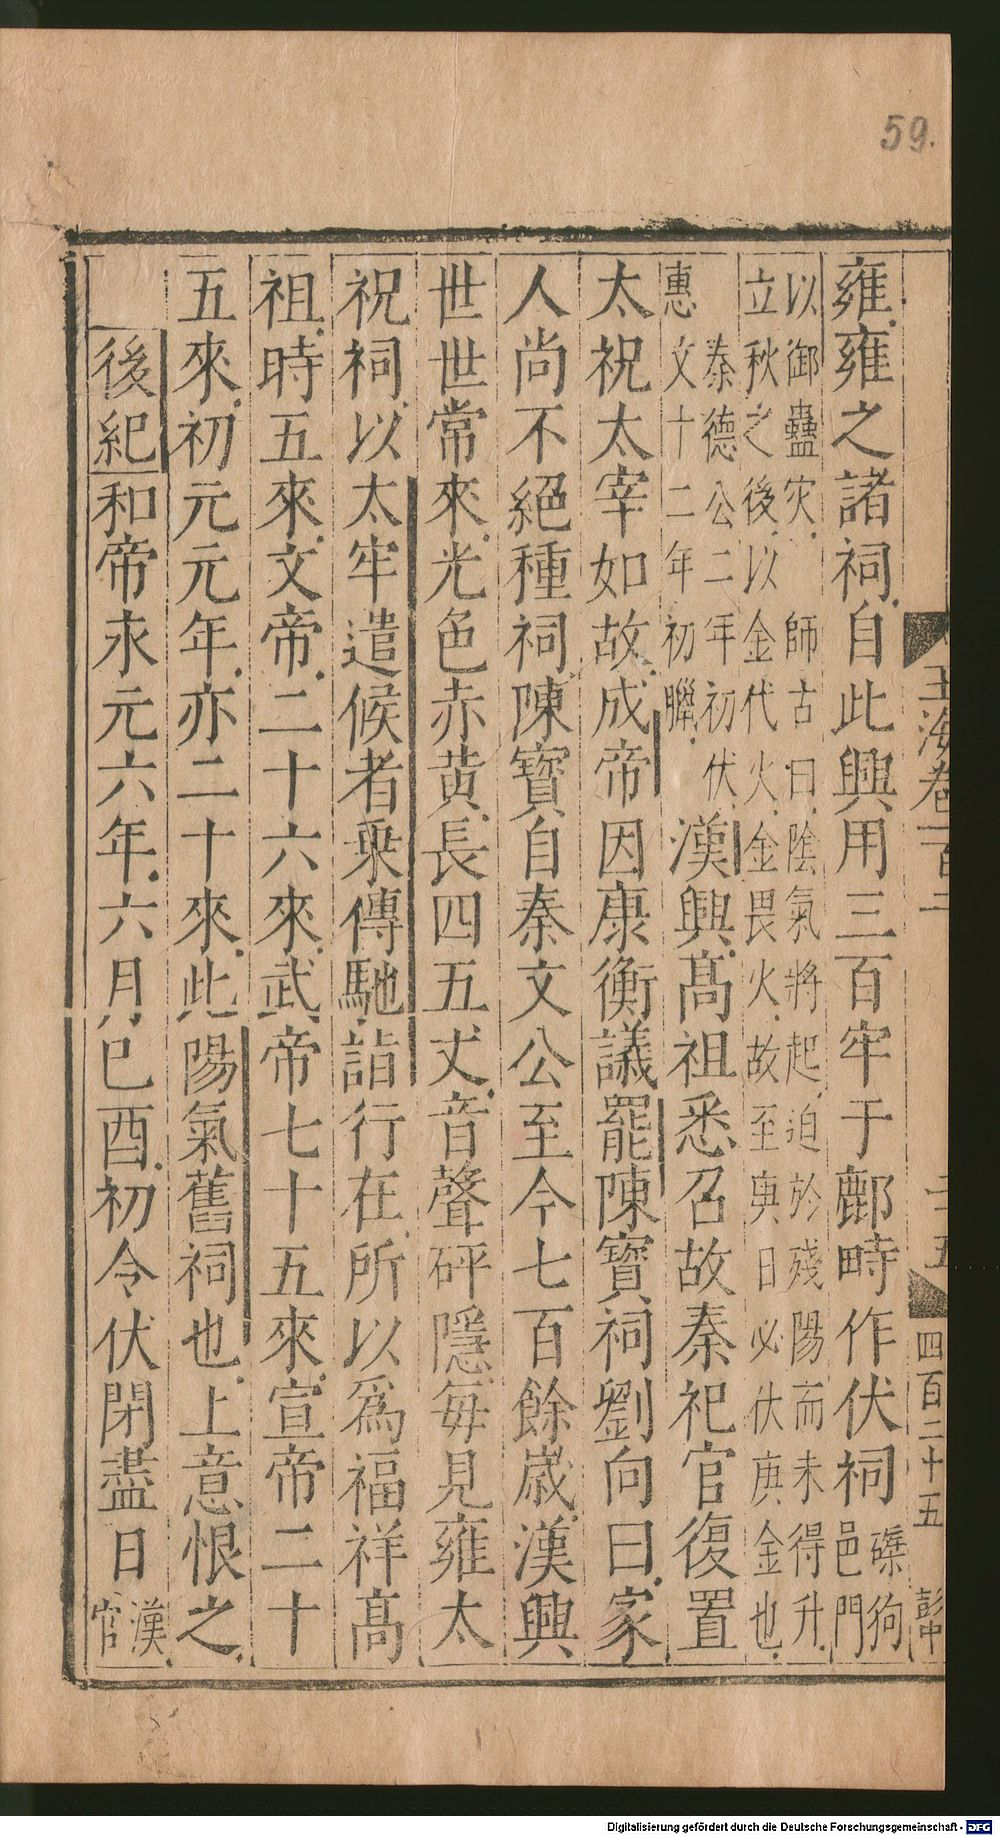 59.
玉海卷一百一
二十五
四百二十五
彭中
雍雍之諸祠自此興用三百牢于鄜畤作伏祠磔狗邑門
以御蠱灾師古曰陰氣將起迫於殘陽而未得升
立秋之後以金代火金畏火故至庚日必伏庚金也
秦德公二年初伏
惠文十二年初臘漢興高祖悉召故秦祀官復置
太祝太宰如故成帝因康衡議罷陳寶祠劉向曰家
人尚不絕種祠陳寶自秦文公至今七百餘歲漢興
世世常來光色赤黃長四五丈音聲砰隱每見雍太
祝祠以太牢遣候者乗傳馳詣行在所以爲福祥高
祖時五來文帝二十六來武帝七十五來宣帝二十
五來初元元年亦二十來此陽氣舊祠也上意恨之
後紀和帝永元六年六月己酉初令伏閉盡日漢官
Digitalisierung gefördert durch die Deutsche Forschungsgemeinschaft - DFG